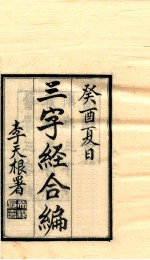 癸酉夏日
三字经合编
李天根署